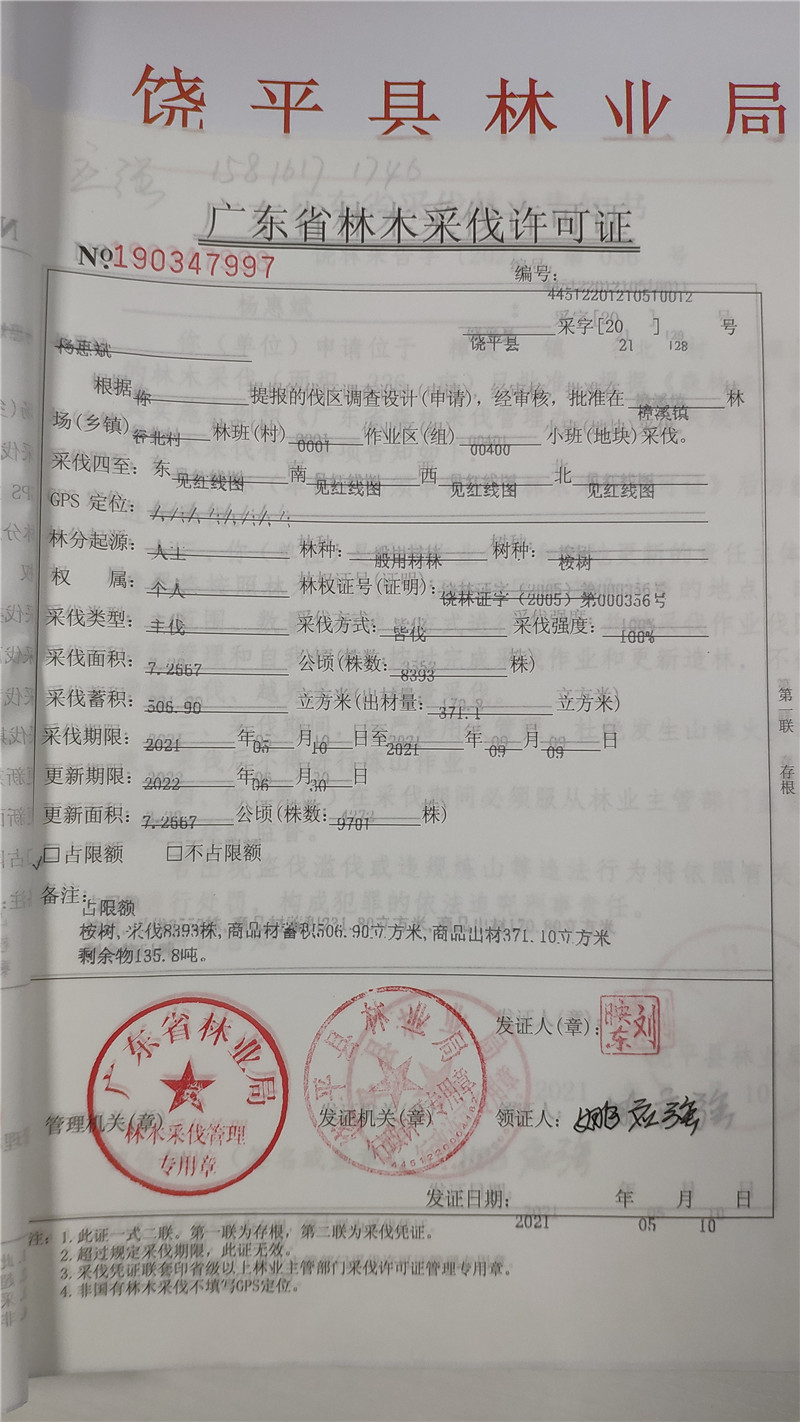 饶平县林业局
广东省林木采伐许可证
№190347997
编号:
4451220121051​0012
饶平县 采字[20 21 ] 128 号
杨惠斌
根据 你 提报的伐区调查设计(申请),经审核,批准在 樟溪镇 林
场(乡镇) 谷北村 林班(村) 0001 作业区(组) 00400 小班(地块)采伐。
采伐四至:东 见红线图 南 见红线图 西 见红线图 北 见红线图
GPS 定位:
林分起源: 人工 林种: 一般用材林 树种: 桉树
权 属: 个人 林权证号(证明): 饶林证字(2005)第000356号
采伐类型: 主伐 采伐方式: 皆伐 采伐强度: 100%
采伐面积: 7.2667 公顷(株数: 8393 株)
采伐蓄积: 506.90 立方米(出材量: 371.1 立方米)
采伐期限: 2021 年 05 月 10 日至 2021 年 09 月 09 日
更新期限: 2022 年 06 月 30 日
更新面积: 7.2667 公顷(株数: 9701 株)
✓□占限额 □不占限额
备注:
占限额
桉树,采伐8393株,商品材蓄积506.90立方米,商品出材371.10立方米
剩余物135.8吨。
第二联 存根
广东省林业局
林木采伐管理
专用章
管理机关(章)
饶平县林业局
行政许可专用章
发证机关(章)
发证人(章):
刘映东
领证人:
发证日期: 2021 年 05 月 10 日
注:1.此证一式二联。第一联为存根,第二联为采伐凭证。
2.超过规定采伐期限,此证无效。
3.采伐凭证联套印省级以上林业主管部门采伐许可证管理专用章。
4.非国有林木采伐不填写GPS定位。